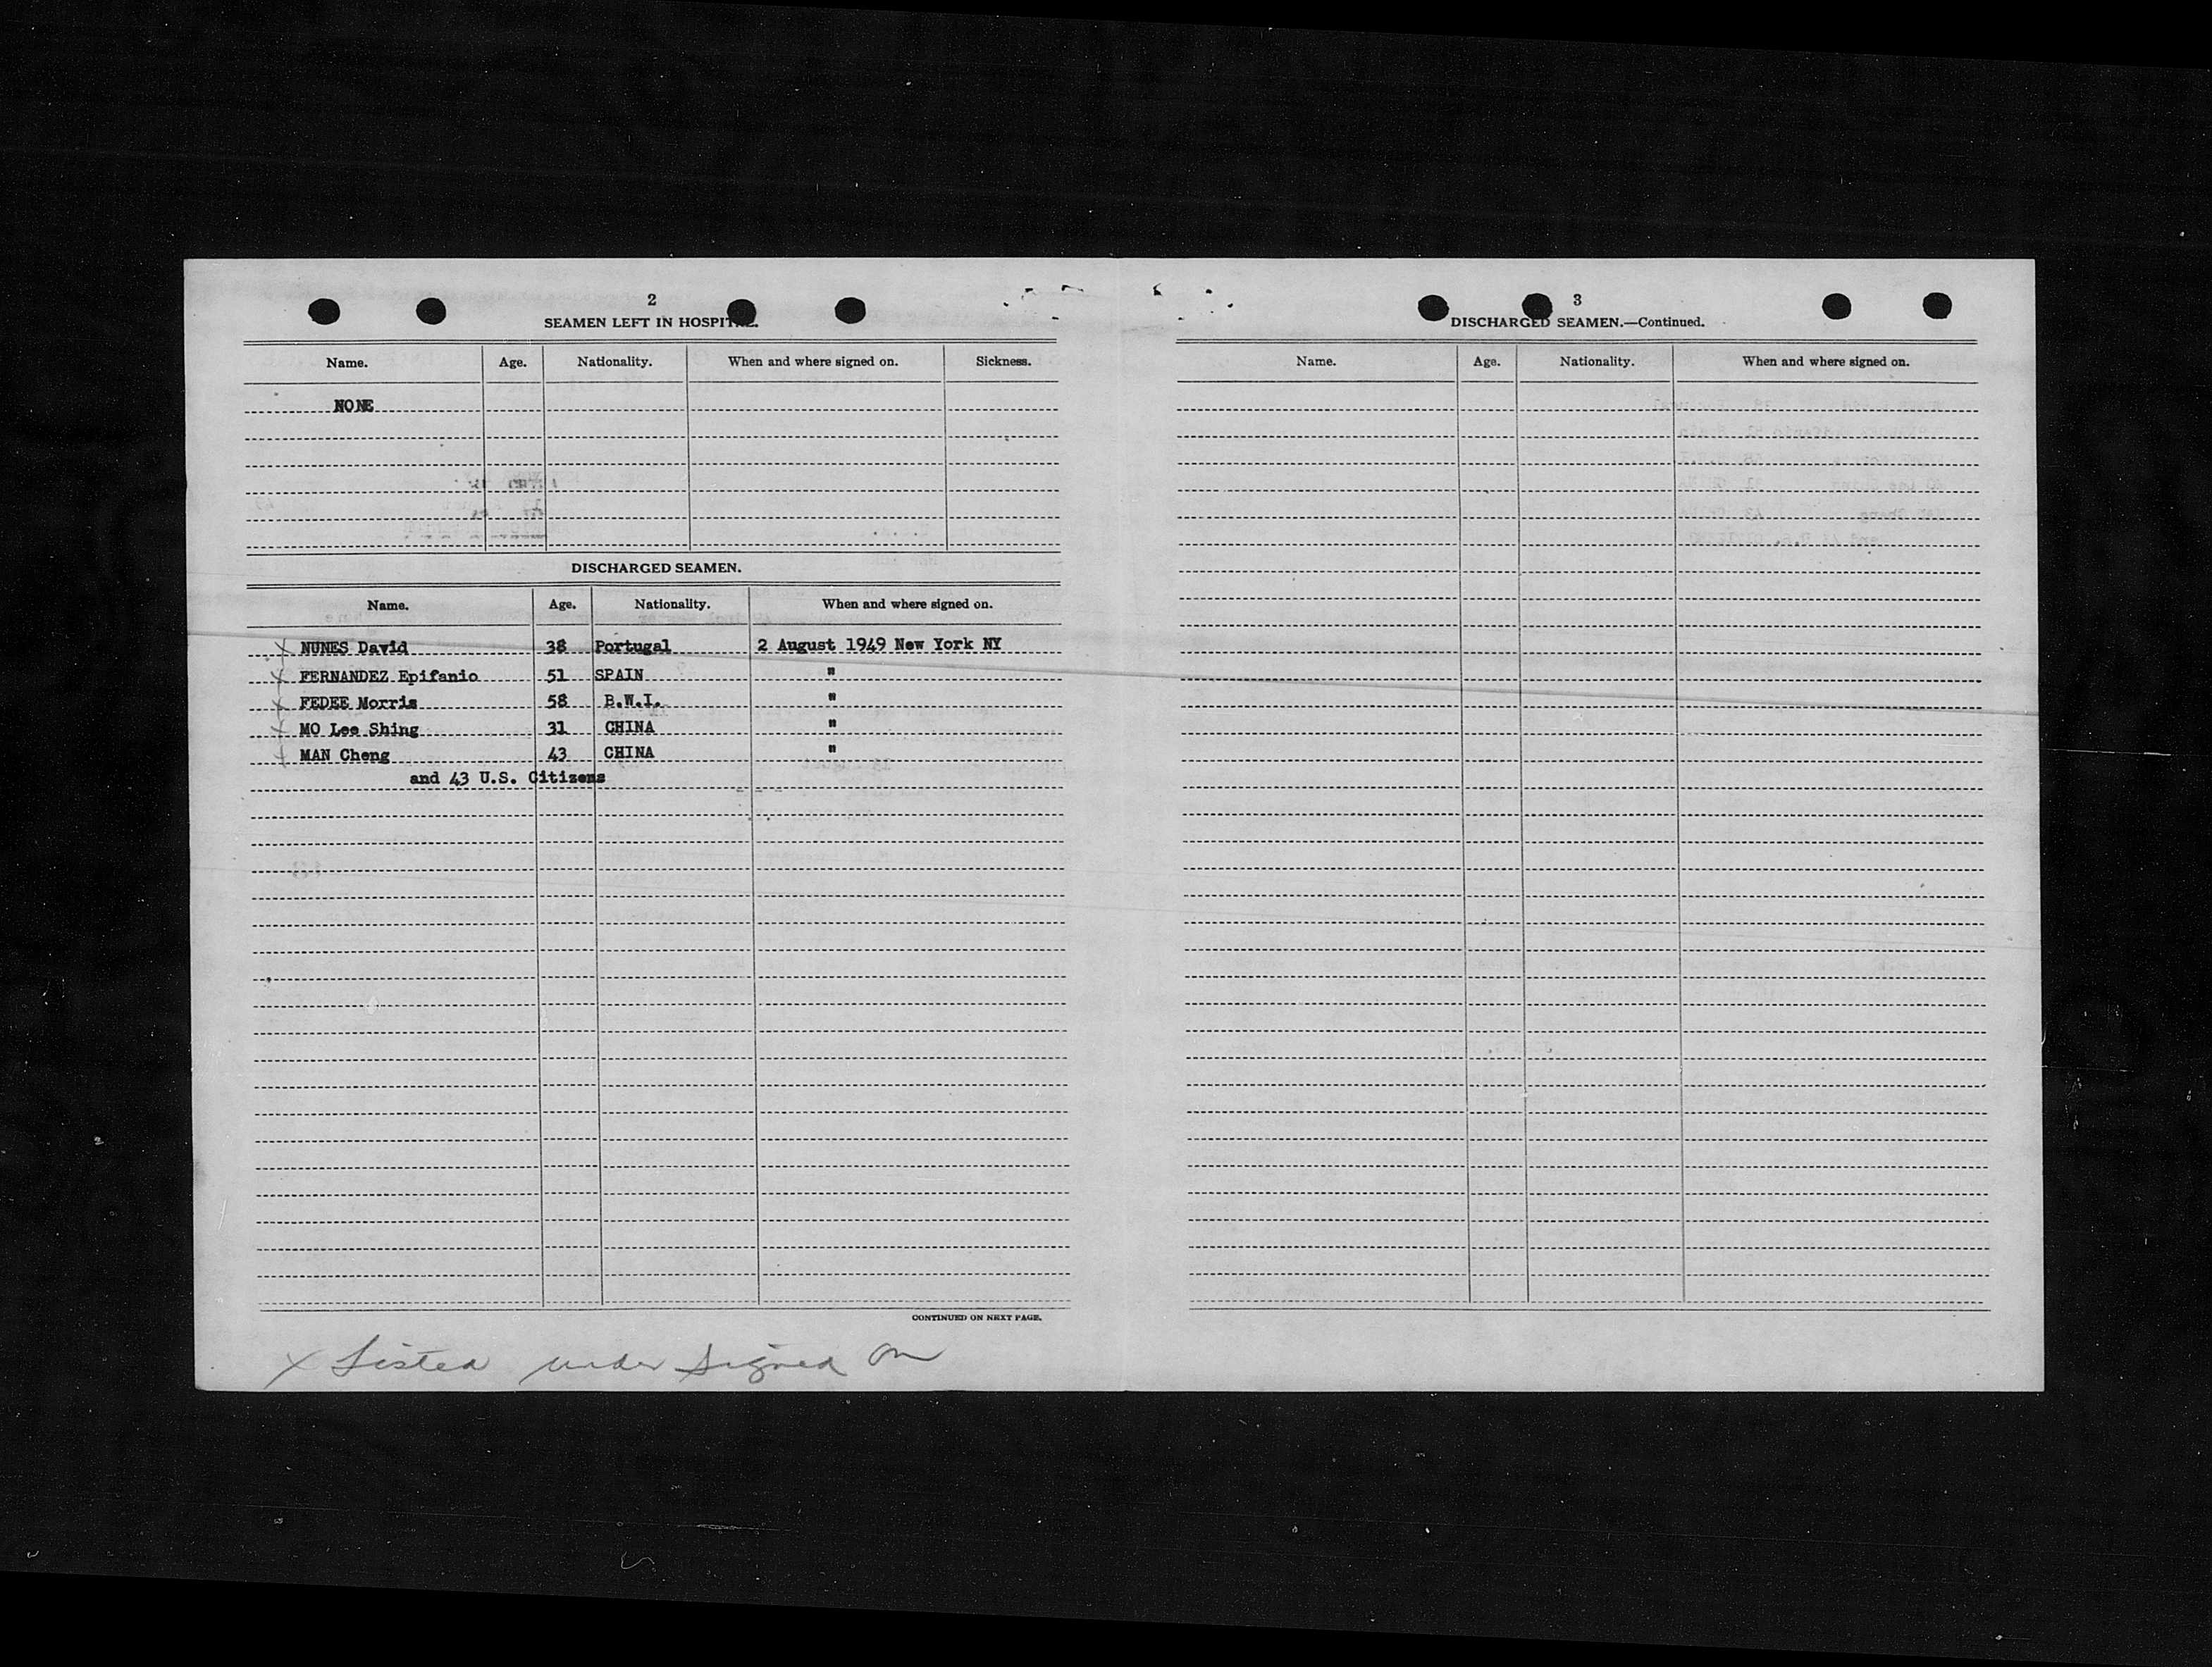 2
SEAMEN LEFT IN HOSPITAL.
Name. Age. Nationality. When and where signed on. Sickness.
NONE
DISCHARGED SEAMEN.
Name. Age. Nationality. When and where signed on.
x NUNES David 38 Portugal 2 August 1949 New York NY
x FERNANDEZ Epifanio 51 SPAIN "
x FEDEE Morris 58 B.W.I. "
x MO Lee Shing 31 CHINA "
x MAN Cheng 43 CHINA "
and 43 U.S. Citizens
CONTINUED ON NEXT PAGE.
x Listed under Signed On
3
DISCHARGED SEAMEN.—Continued.
Name. Age. Nationality. When and where signed on.